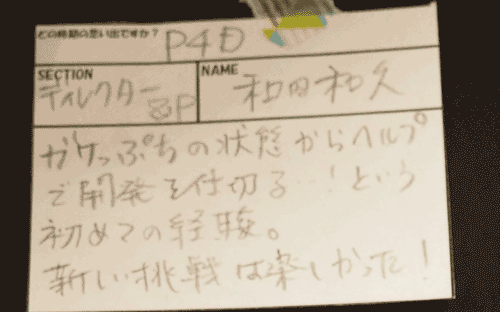 どの時期の思い出ですか？ P4D
SECTION ディレクター&P
NAME 和田和久
ガケっぷちの状態からヘルプ
で開発を仕切る…！という
初めての経験。
新しい挑戦は楽しかった！